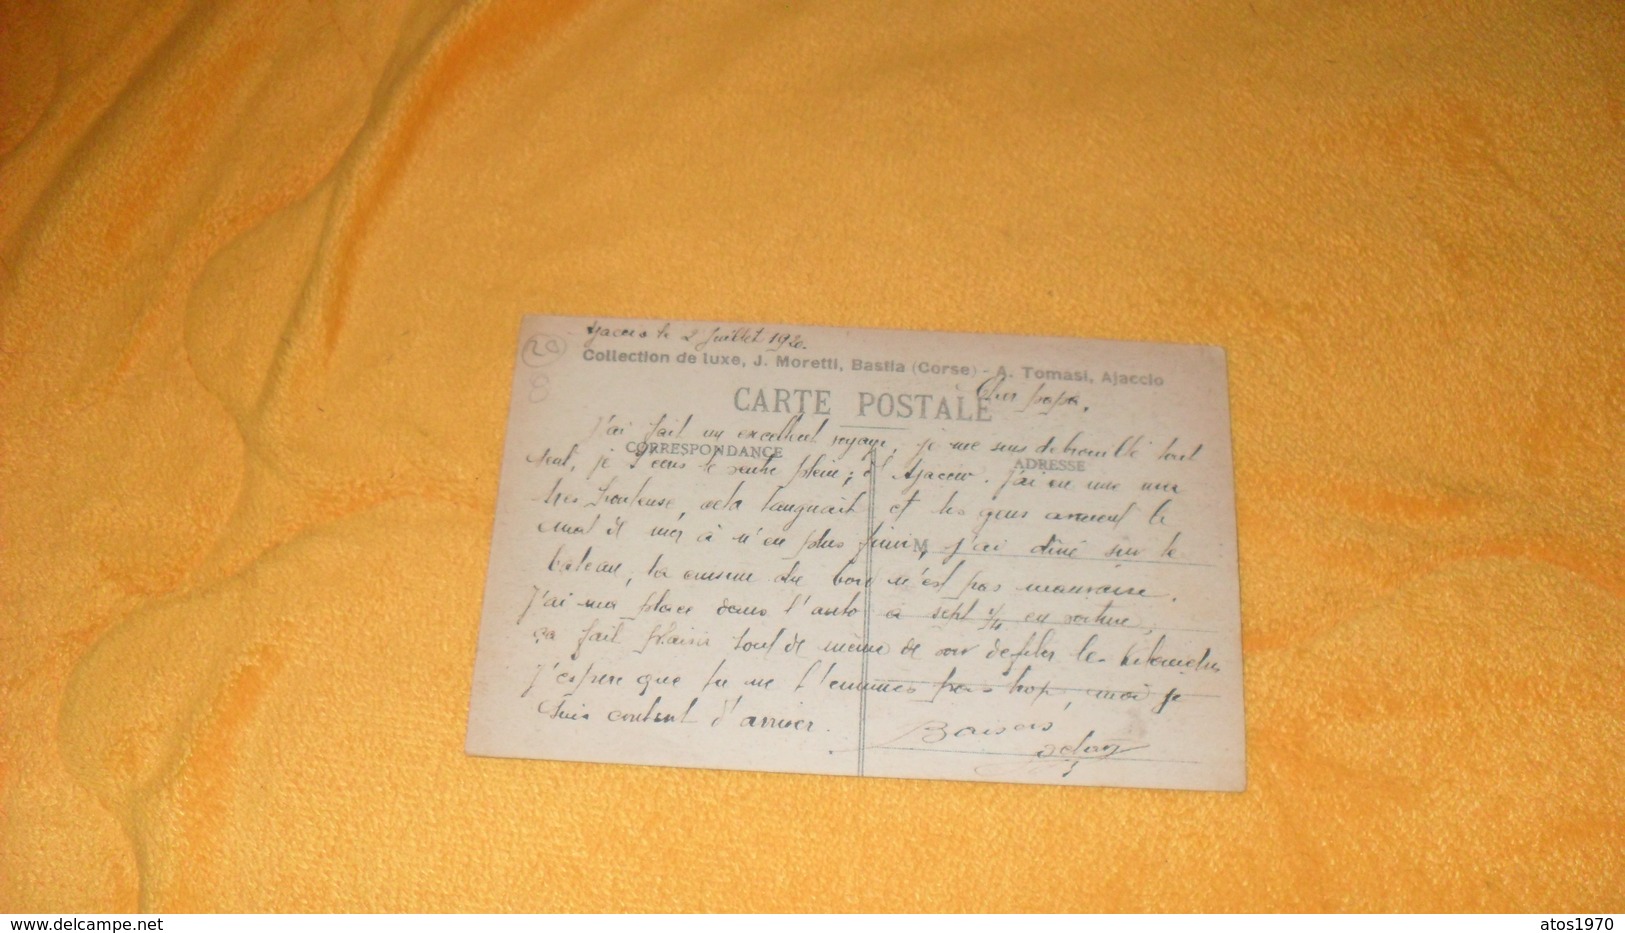 20
Ajaccio le 2 Juillet 1920.
Collection de luxe, J. Moretti, Bastia (Corse) - A. Tomasi, Ajaccio
CARTE POSTALE
Cher papa,
J'ai fait un excellent voyage, je me suis debrouillé tout
CORRESPONDANCE
ADRESSE
seul, je le ventre plein; Ajaccio. J'ai eu une mer
très houleuse, cela tanguait et les gens avaient le
mal de mer à n'en plus finir, j'ai diné sur le
M
bateau, la cuisine de bord n'est pas mauvaise.
J'ai ma place dans l'auto à sept en voiture,
ça fait plaisir tout de même de voir défiler les kilomètres
J'espère que tu ne t'ennuies pas trop, moi je
suis content d'arriver.
Baisers
delcampe.net
atos1970